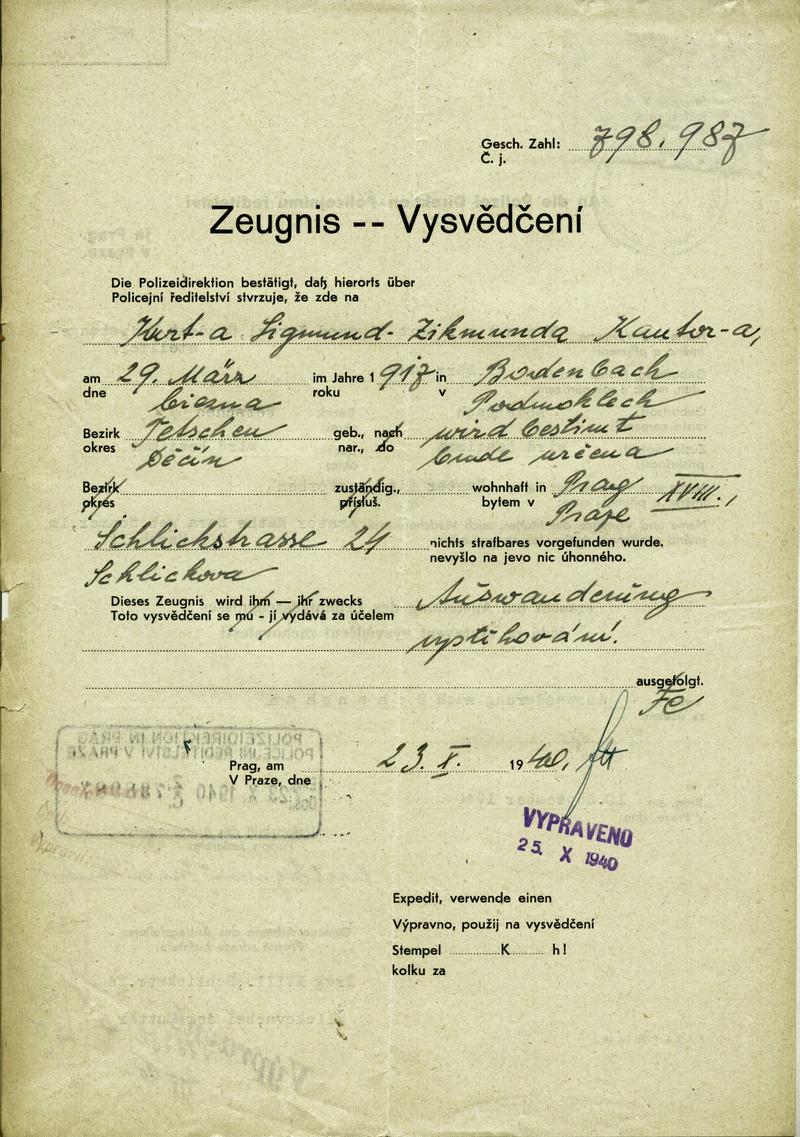 Gesch. Zahl: 798.987
Č. j.
Zeugnis -- Vysvědčení
Die Polizeidirektion bestätigt, daß hierorts über
Policejní ředitelství stvrzuje, že zde na
Kurt-a Sigmund- Zikmunda Kantor-a,
am 29. März im Jahre 1917 in Bodenbach
dne března roku v Podmoklech
Bezirk Tetschen geb., nach wird bestimt
okres Děčín nar., do bude určena
Bezirk zuständig., wohnhaft in Prag XVIII.,
okres přísluš. bytem v Praze
Schlickstrasse 24 nichts strafbares vorgefunden wurde.
Schlickova nevyšlo na jevo nic úhonného.
Dieses Zeugnis wird ihm — ihr zwecks Auswanderung
Toto vysvědčení se mu - jí vydává za účelem vystěhování.
ausgefolgt.
POLIZEIDIREKTION IN PRAG
POLICEJNÍ ŘEDITELSTVÍ V PRAZE
23 X 1940
Prag, am 23. X. 1940,
V Praze, dne
VYPRAVENO
25. X 1940
Expedit, verwende einen
Výpravno, použij na vysvědčení
Stempel K h!
kolku za